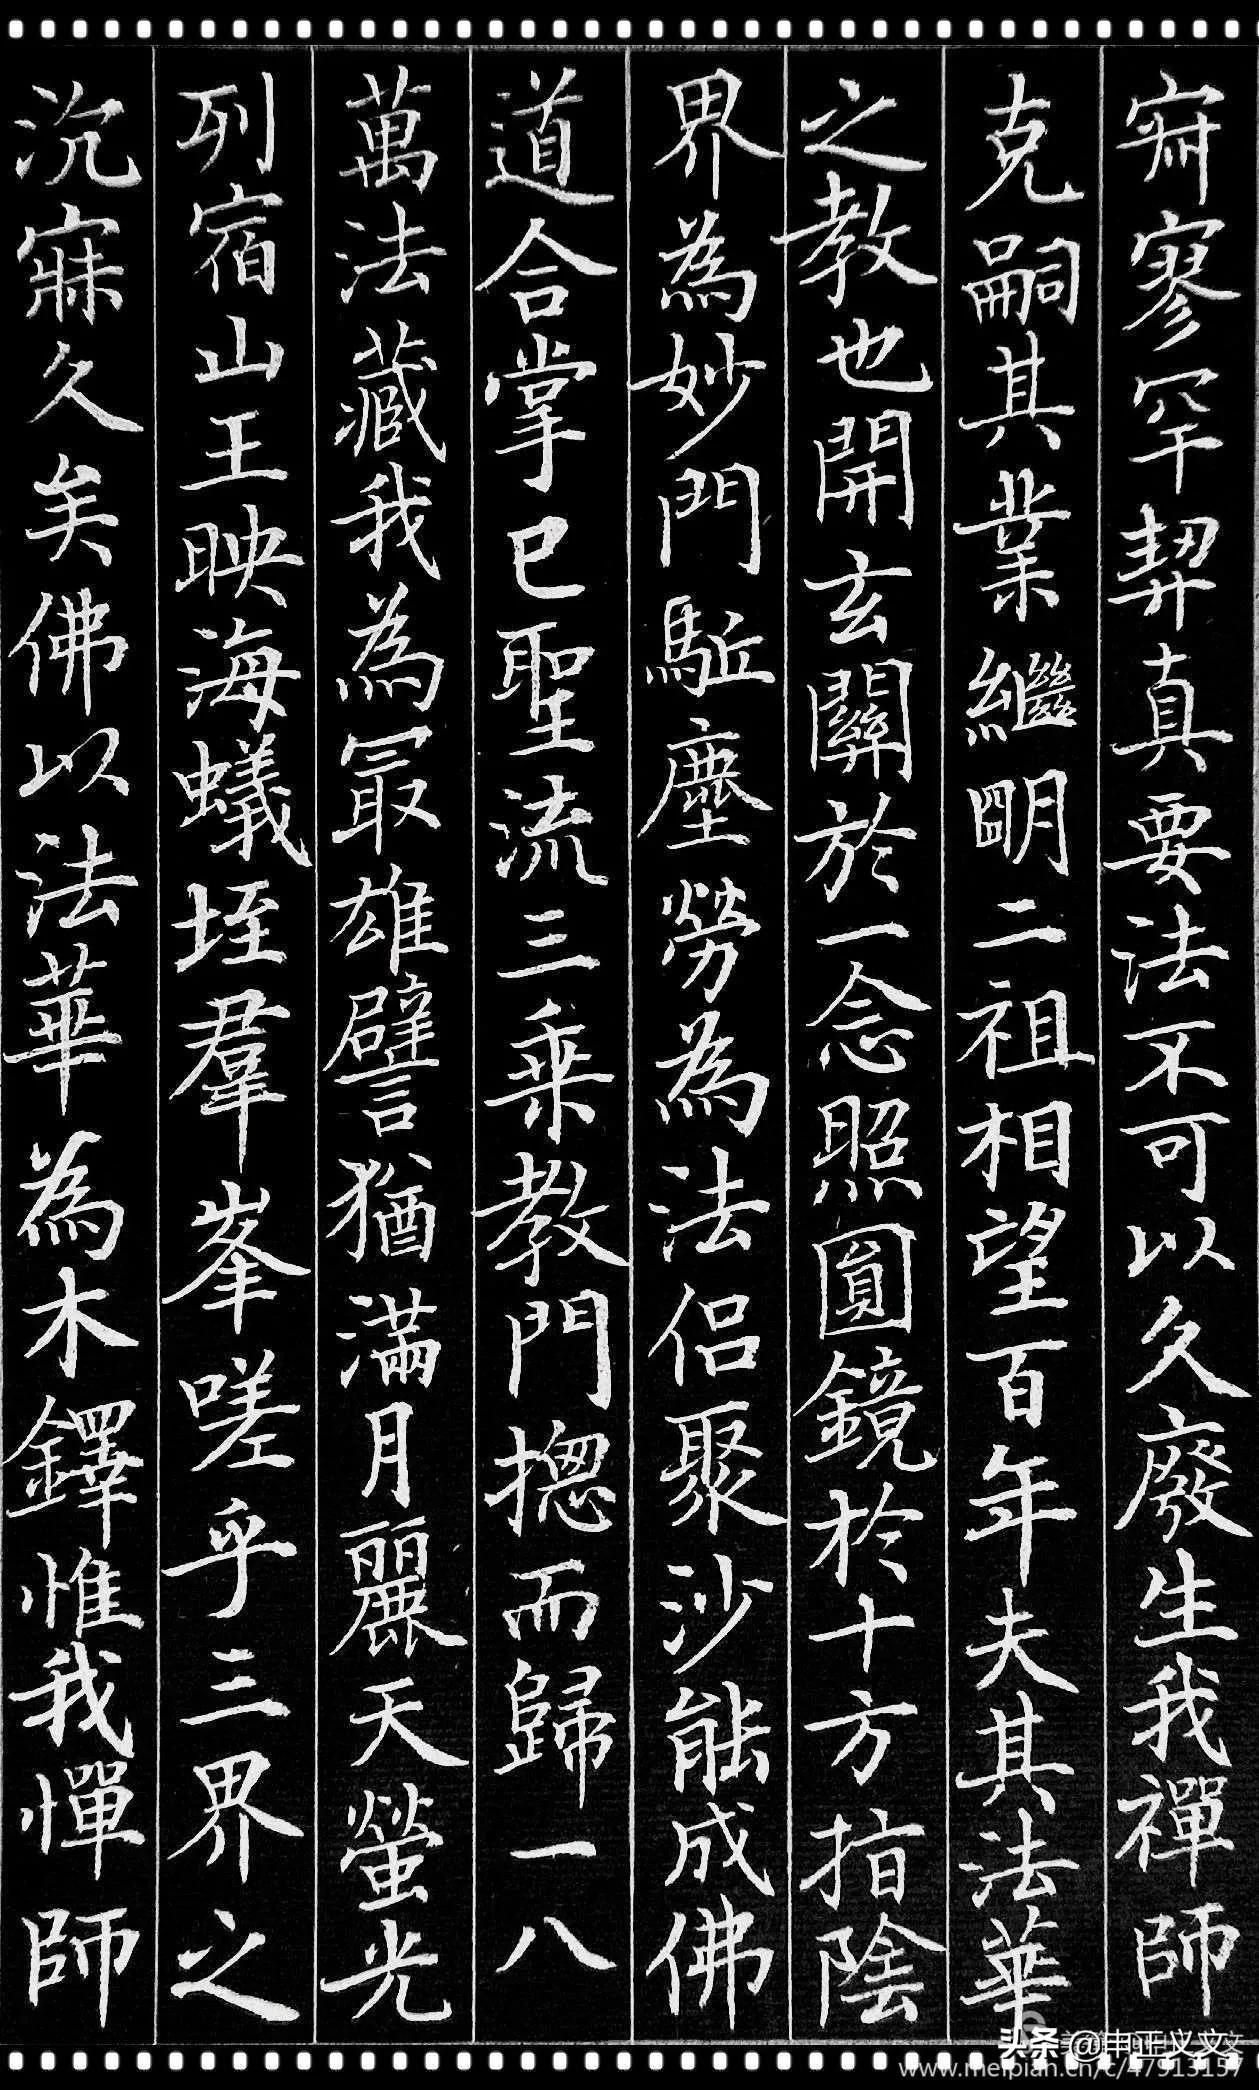 寂寥罕契真要法不可以久廢生我禪師
克嗣其業繼明二祖相望百年夫其法華
之教也開玄關於一念照圓鏡於十方指陰
界為妙門駈塵勞為法侣聚沙能成佛
道合掌已聖流三乘教門揔而歸一八
萬法藏我為冣雄譬猶滿月麗天螢光
列宿山王映海蟻垤羣峯嗟乎三界之
沉寐久矣佛以法華為木鐸惟我憚師
头条@中正义文
www.meipian.cn/c/47913157